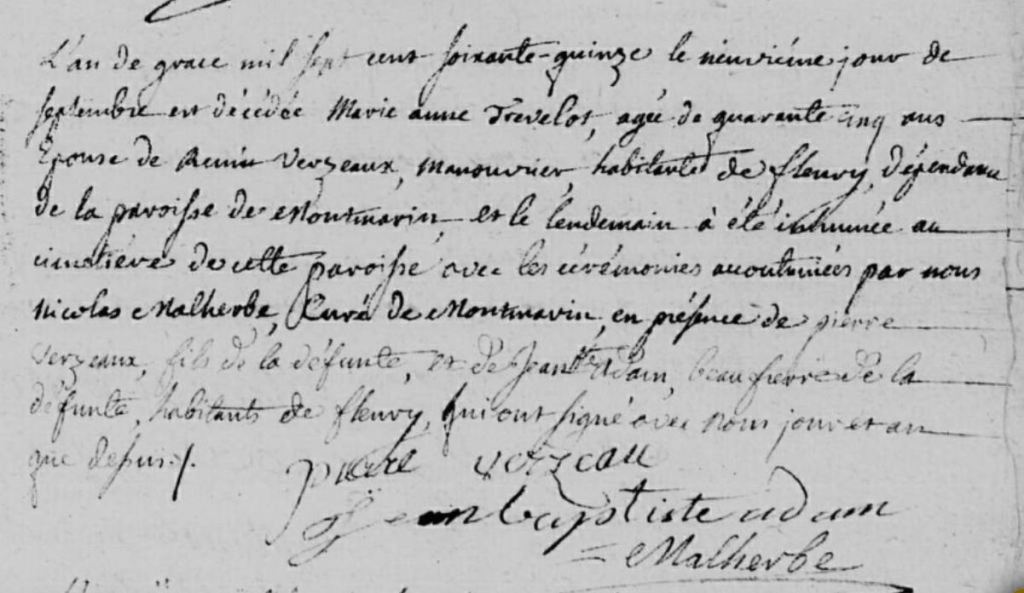 L'an de grace mil sept cent soixante-quinze le neuviéme jour de
septembre est décédée Marie anne Trevelot, agée de quarante cinq ans
Epouse de Remin Verzeaux, manouvrier habitants de fleury, dépendance
de la paroisse de Montmarin, et le lendemain à été inhumée au
cimetiére de cette paroisse avec les cérémonies accoutumées par nous
Nicolas Malherbe, Curé de Montmarin, en présence de pierre
Verzeaux, fils de la défunte, et de Jean Bte Adam, beaufrere de la
défunte, habitants de fleury, qui ont signé avec nous jour et an
que dessus.
pierre verzeau
Jean baptiste adam
Malherbe